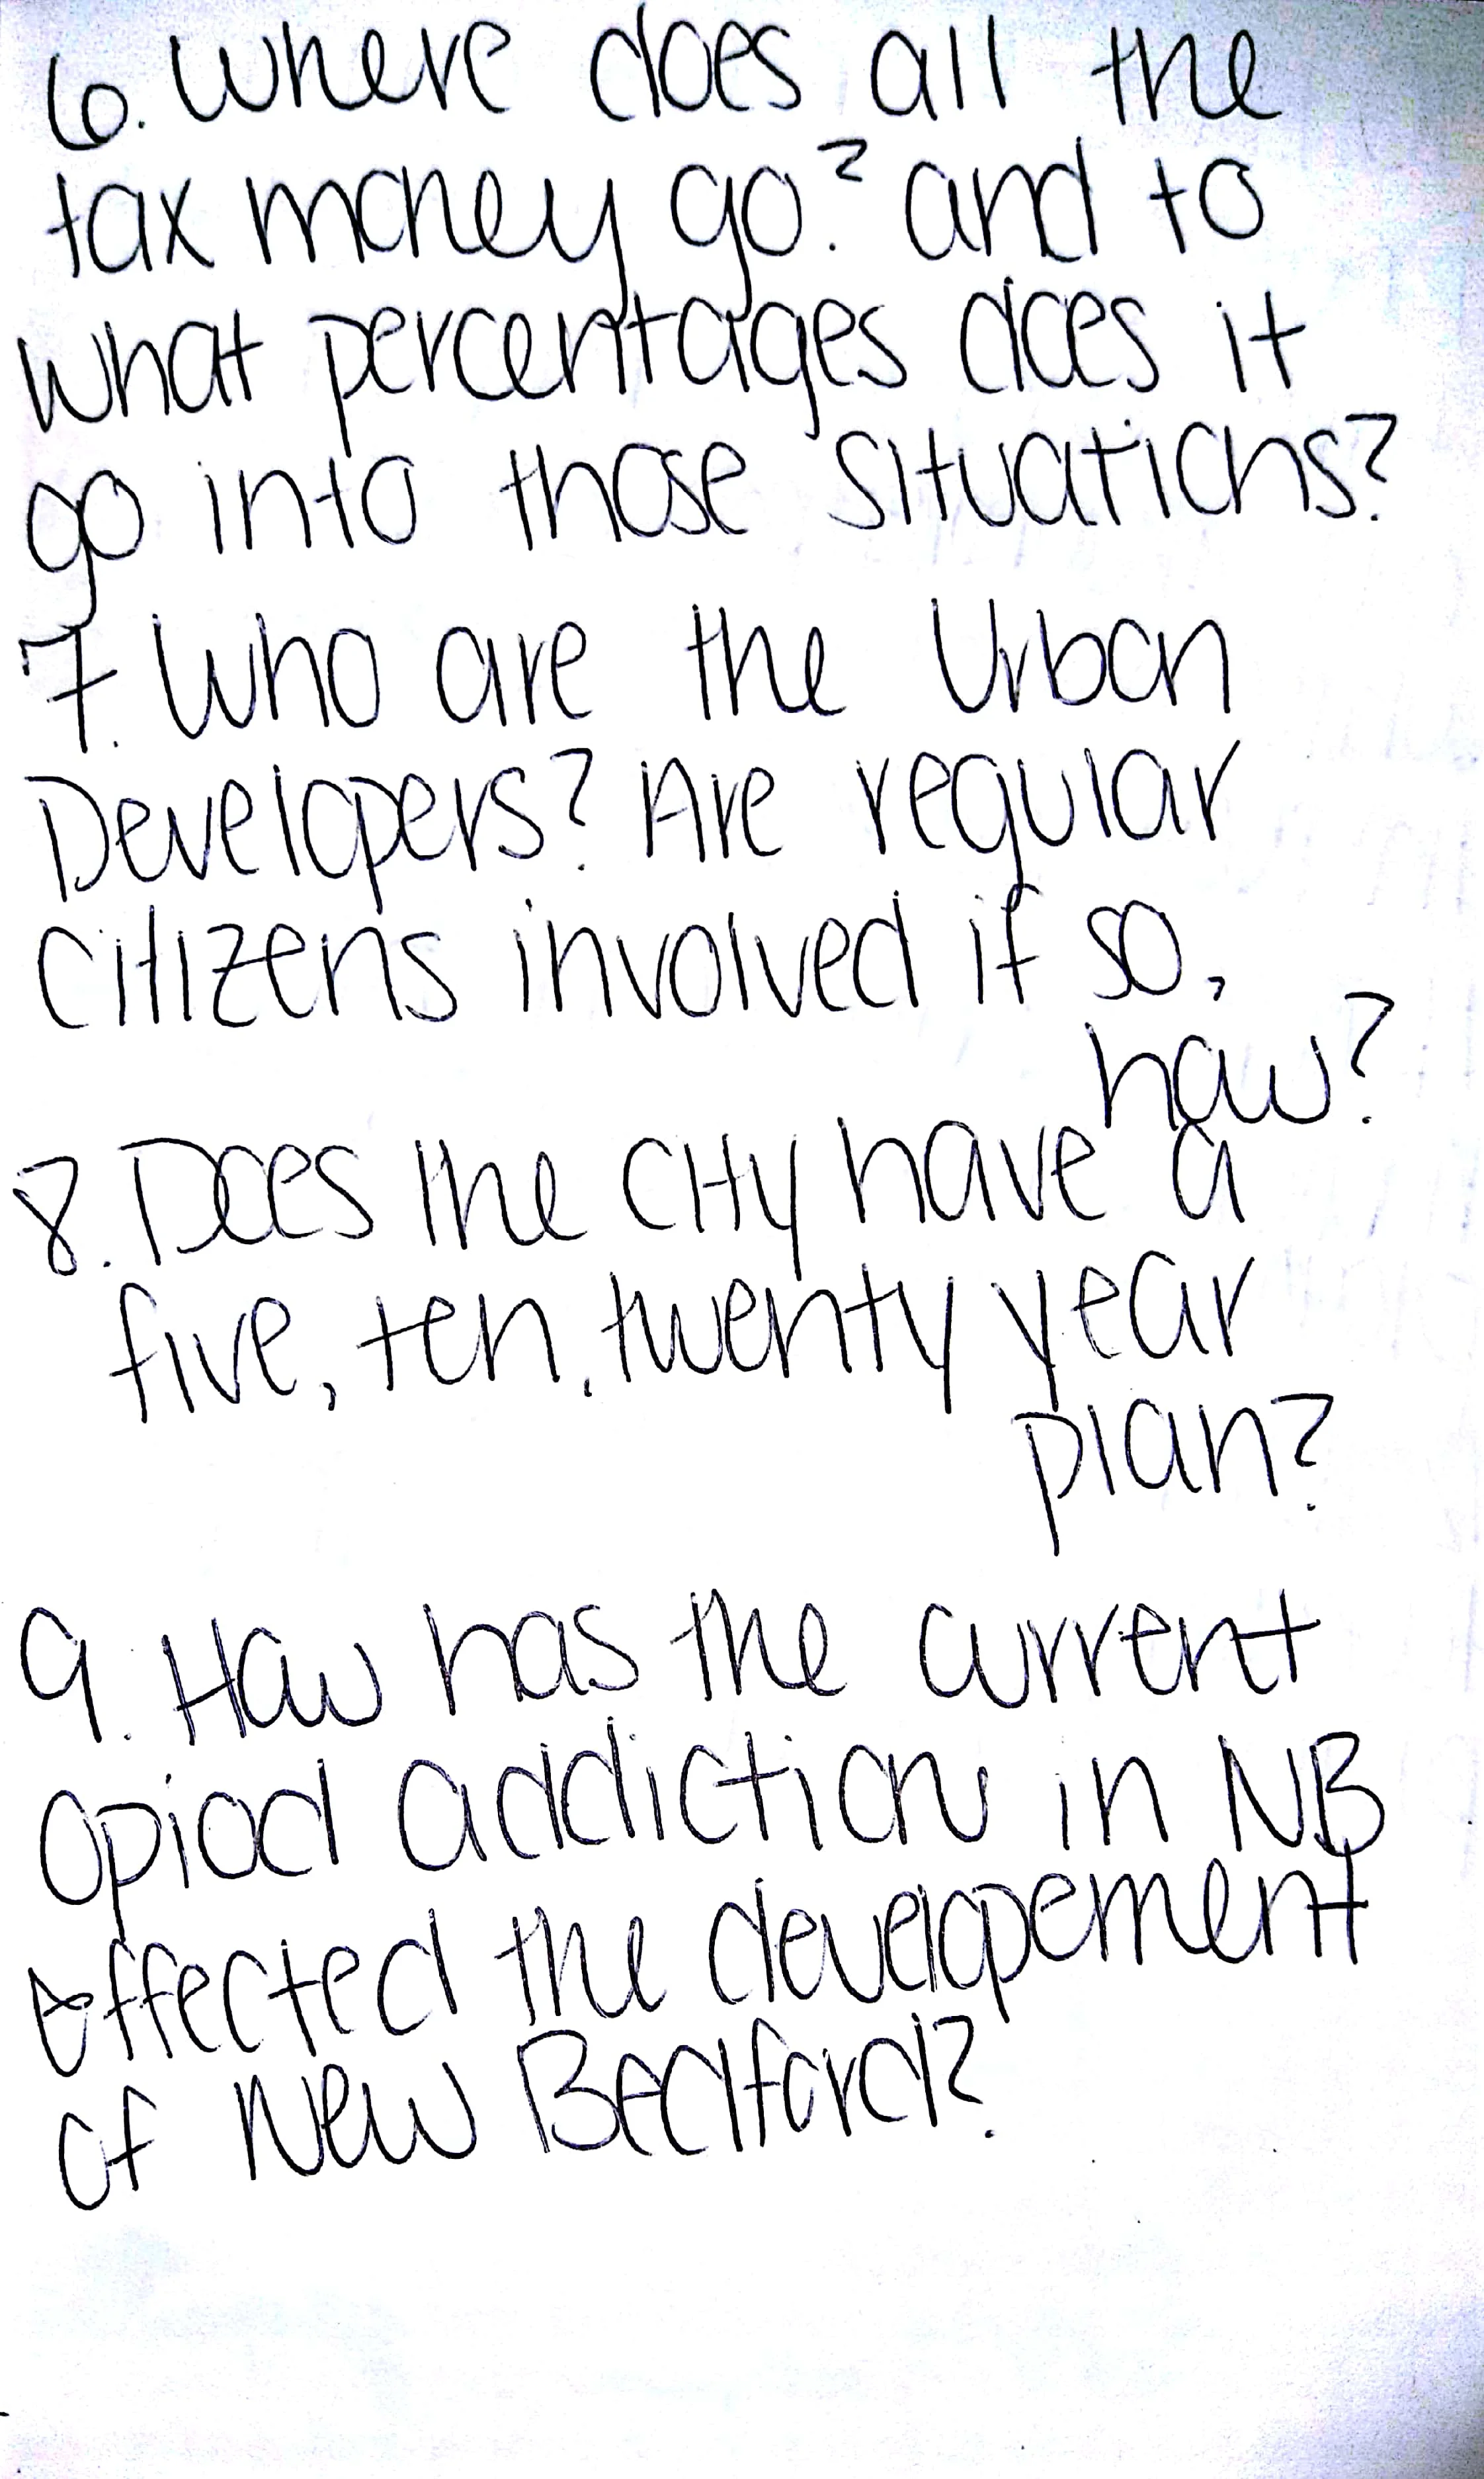 6. Where does all the
tax money go? and to
what percentages does it
go into those situations?
7. Who are the Urban
Developers? Are regular
citizens involved if so,
how?
8. Does the city have a
five, ten, twenty year
plan?
9. How has the current
Opiod addiction in NB
effected the developement
of New Bedford?